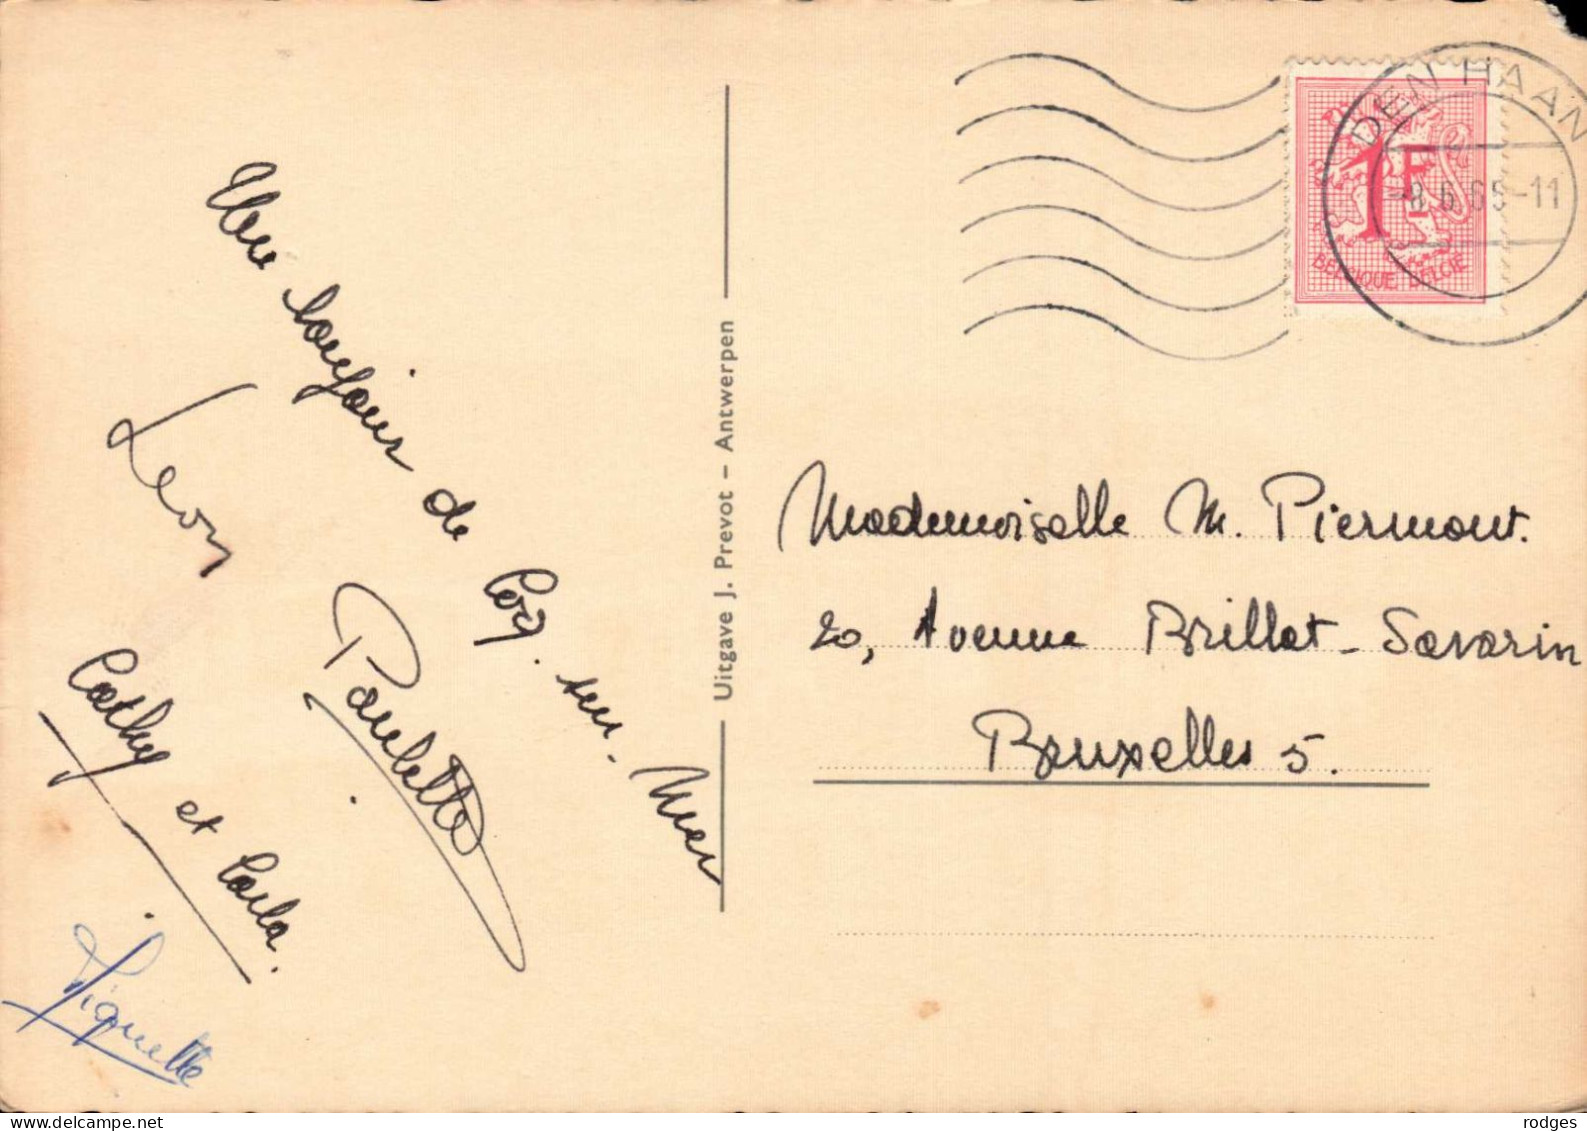 Un bonjour de Coq-sur-Mer
Léon
Paulette
Cathy et Carla.
Uitgave J. Prevot – Antwerpen
DEN HAAN
-8.6.65-11
1F
BELGIQUE BELGIE
Mademoiselle M. Piermont.
20, Avenue Brillat-Savarin
Bruxelles 5.
delcampe.net
rodges